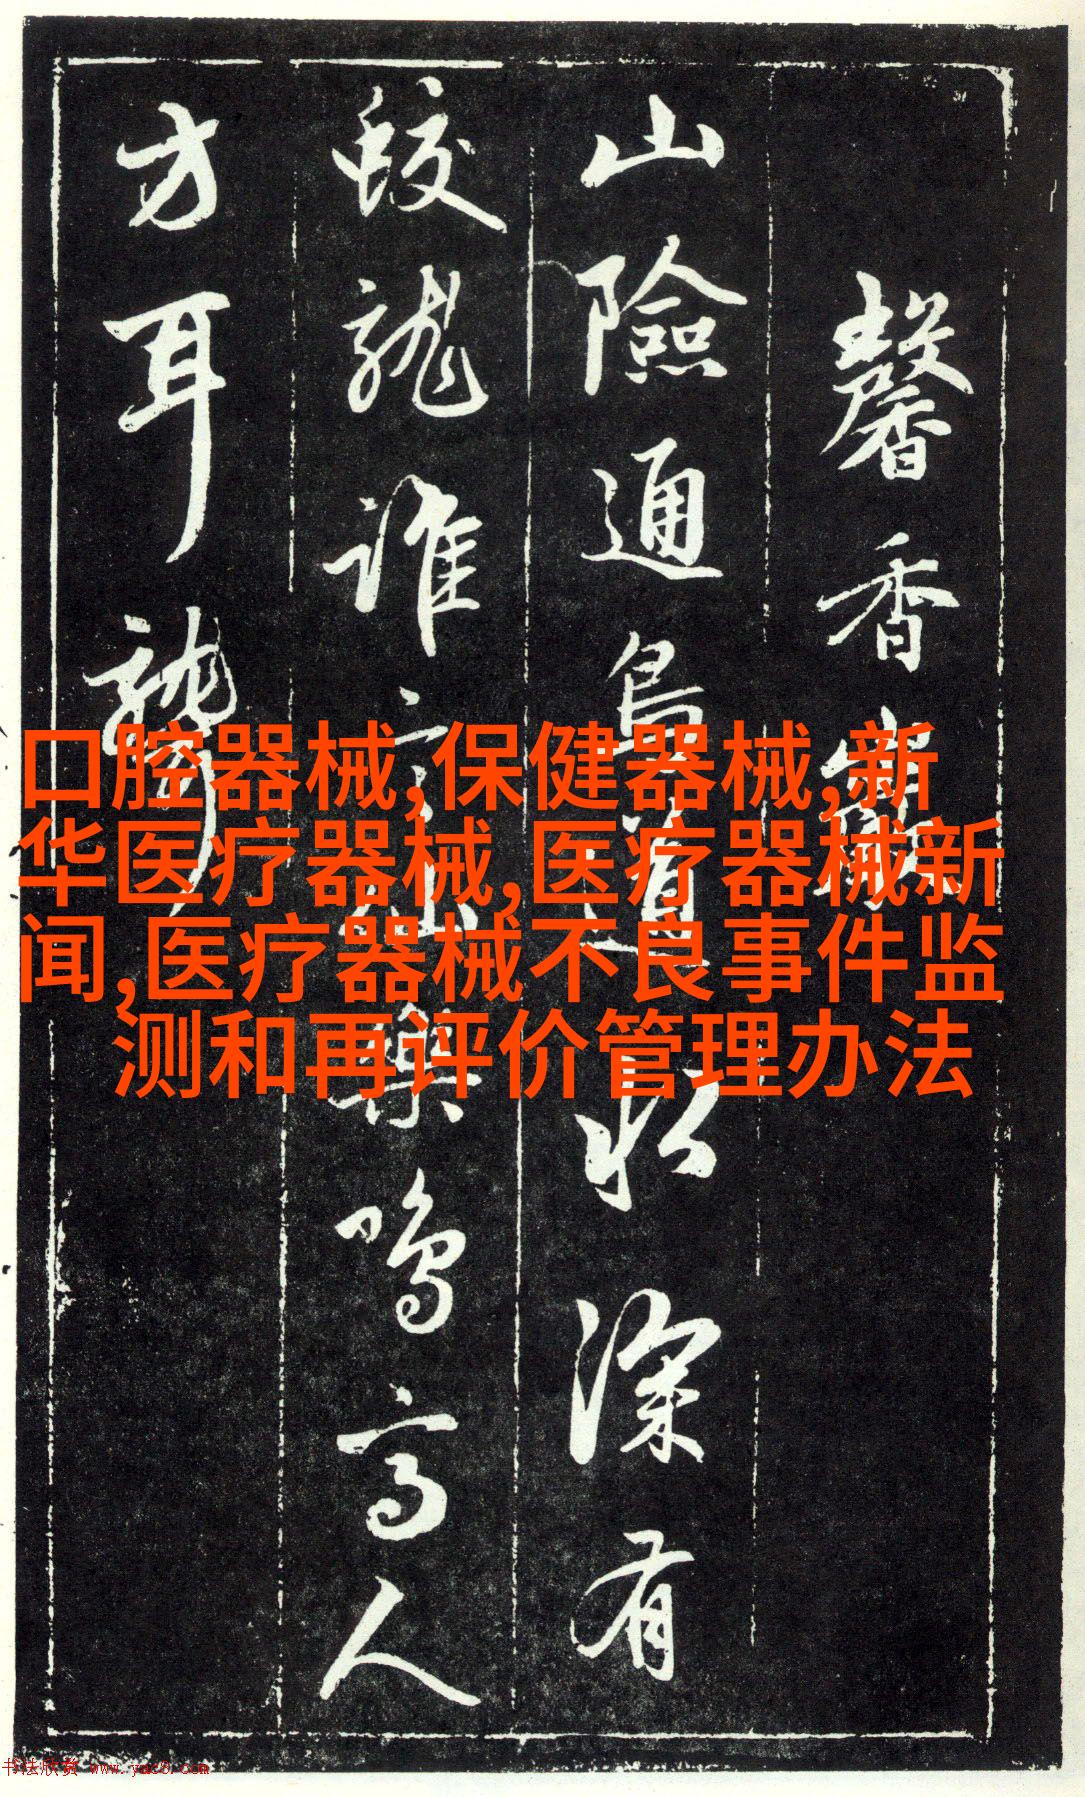 馨香
山險通鳥道水深有
蛟龍誰
鳴高人
方耳
口腔器械,保健器械,新
华医疗器械,医疗器械新
闻,医疗器械不良事件监
测和再评价管理办法
书法欣赏 www.yac8.com